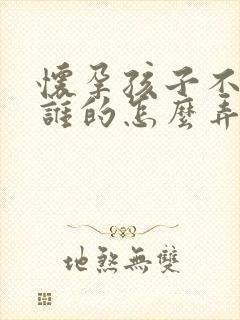 懷孕孩子不
誰的怎麼弄
地煞無雙